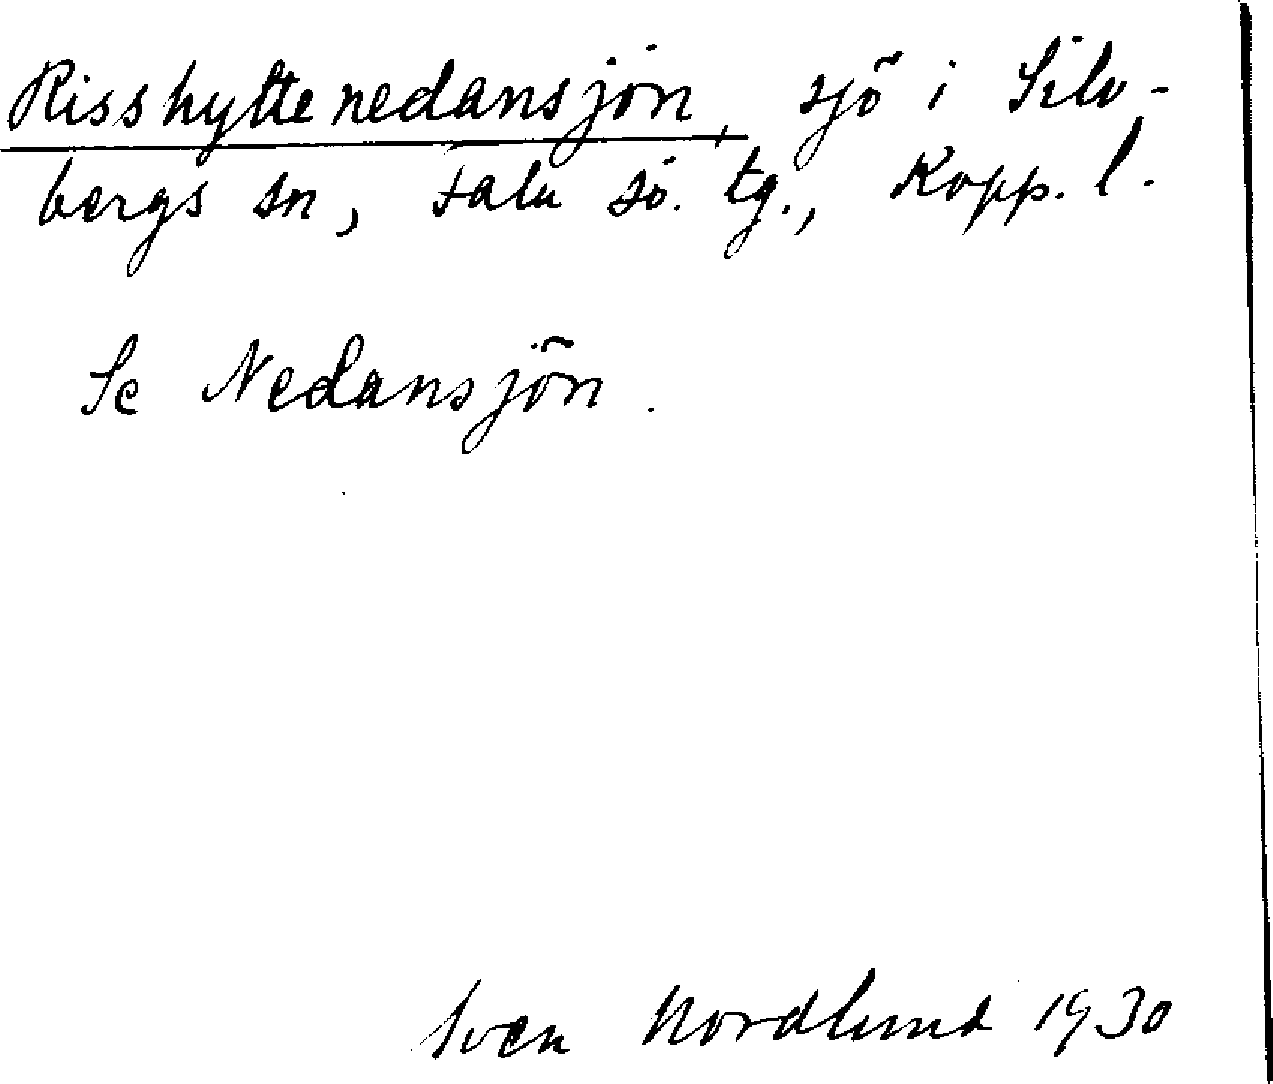 Risshyttenedansjön, sjö i Silv-
bergs sn, Falu sö. tg., Kopp. l.
Se Nedansjön.
Sven Nordlund 1930